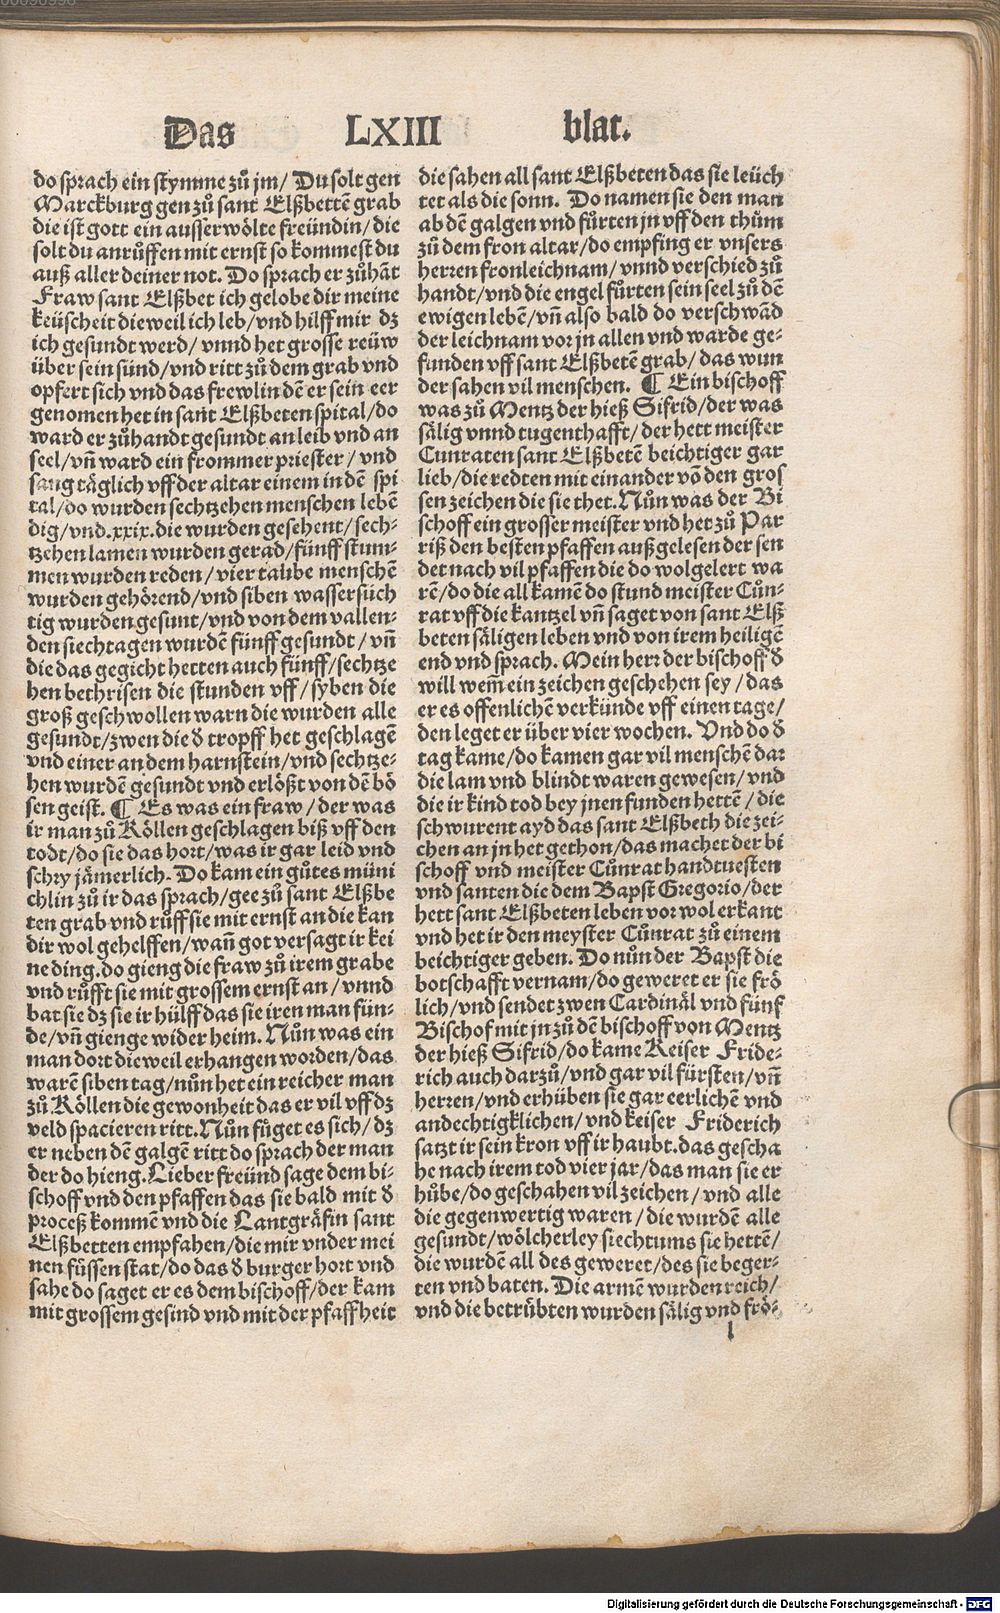 Das LXIII blat.
do sprach ein stymme zů jm/ Du solt gen
Marckburg gen zů sant Elßbettē grab
die ist gott ein ausserwölte freündin/die
solt du anrůffen mit ernst so kommest du
auß aller deiner not. Do sprach er zůhāt
Fraw sant Elßbet ich gelobe dir meine
keüscheit dieweil ich leb/vnd hilff mir dz
ich gesundt werd/ vnnd het grosse reüw
über sein sünd/vnd ritt zů dem grab vnd
opfert sich vnd das frewlin dē er sein eer
genomen het in sant Elßbeten spital/do
ward er zůhandt gesundt an leib vnd an
seel/vn̄ ward ein frommer priester/vnd
sang täglich vff der altar einem in dē spi
tal/do wurden sechtzehen menschen lebē
dig/vnd.xxix.die wurden gesehent/sech-
tzehen lamen wurden gerad/fünff stum-
men wurden reden/vier taube menschē
wurden gehörend/vnd siben wassersüch
tig wurden gesunt/vnd von dem vallen-
den siechtagen wurdē fünff gesundt/vn̄
die das gegicht hetten auch fünff/sechtze
hen bethrisen die stunden vff/syben die
groß geschwollen warn die wurden alle
gesundt/zwen die d tropff het geschlagē
vnd einer an dem harnstein/vnd sechtze-
hen wurdē gesundt vnd erlößt von dē bö
sen geist. ¶ Es was ein fraw/der was
ir man zů Köllen geschlagen biß vff den
todt/do sie das hort/was ir gar leid vnd
schry jämerlich. Do kam ein gůtes müni
chlin zů ir das sprach/gee zů sant Elßbe
ten grab vnd růff sie mit ernst an die kan
dir wol gehelffen/wan̄ got versagt ir kei
ne ding.do gieng die fraw zů irem grabe
vnd růfft sie mit grossem ernst an/vnnd
bat sie dz sie ir hülff das sie iren man fün-
de/vn̄ gienge wider heim. Nůn was ein
man dort dieweil erhangen worden/das
warē siben tag/nůn het ein reicher man
zů Köllen die gewonheit das er vil vff dz
veld spacieren ritt. Nůn füget es sich/dz
er neben dē galgē ritt do sprach der man
der do hieng. Lieber freünd sage dem bi-
schoff vnd den pfaffen das sie bald mit d
proceß kommē vnd die Lantgräfin sant
Elßbetten empfahen/die mir vnder mei
nen füssen stat/do das d burger hort vnd
sahe do saget er es dem bischoff/der kam
mit grossem gesind vnd mit der pfaffheit
die sahen all sant Elßbeten das sie leüch
tet als die sonn. Do namen sie den man
ab dē galgen vnd fůrten jn vff den thům
zů dem fron altar/do empfing er vnsers
herren fronleichnam/vnnd verschied zů
handt/vnd die engel fůrten sein seel zů dē
ewigen lebē/vn̄ also bald do verschwād
der leichnam vor jn allen vnd warde ge-
funden vff sant Elßbetē grab/das wun
der sahen vil menschen. ¶ Ein bischoff
was zů Mentz der hieß Sifrid/der was
sälig vnnd tugenthafft/der hett meister
Cunraten sant Elßbetē beichtiger gar
lieb/die redten mit einander vō den gros
sen zeichen die sie thet. Nůn was der Bi
schoff ein grosser meister vnd het zů Par
riß den besten pfaffen auß gelesen der sen
det nach vil pfaffen die do wol gelert wa
rē/do die all kamē do stund meister Cůn-
rat vff die kantzel vn̄ saget von sant Elß
beten säligen leben vnd von irem heiligē
end vnd sprach. Mein herr der bischoff d
will wem̄ ein zeichen geschehen sey/das
er es offenlichē verkünde vff einen tage/
den leget er über vier wochen. Vnd do d
tag kame/do kamen gar vil menschē dar
die lam vnd blindt waren gewesen/vnd
die ir kind tod bey jnen funden hettē/die
schwurent ayd das sant Elßbeth die zei-
chen an jn het gethon/das machet der bi
schoff vnd meister Cůnrat handtuesten
vnd santen die dem Bapst Gregorio/der
hett sant Elßbeten leben vor wol erkant
vnd het ir den meyster Cůnrat zů einem
beichtiger geben. Do nůn der Bapst die
botschafft vernam/do geweret er sie frö
lich/vnd sendet zwen Cardinäl vnd fünf
Bischof mit jn zů dē bischoff von Mentz
der hieß Sifrid/do kame Keiser Fride-
rich auch darzů/vnd gar vil fürsten/vn̄
herren/vnd erhüben sie gar eerlichē vnd
andechtigklichen/vnd keiser Friderich
satzt ir sein kron vff ir haubt.das gescha
he nach irem tod vier jar/das man sie er
hůbe/do geschahen vil zeichen/vnd alle
die gegenwertig waren/die wurdē alle
gesundt/wölcherley siechtums sie hettē/
die wurdē all des geweret/des sie beger-
ten vnd baten. Die armē wurden reich/
vnd die betrübten wurden sälig vnd frö-
l
Digitalisierung gefördert durch die Deutsche Forschungsgemeinschaft - DFG